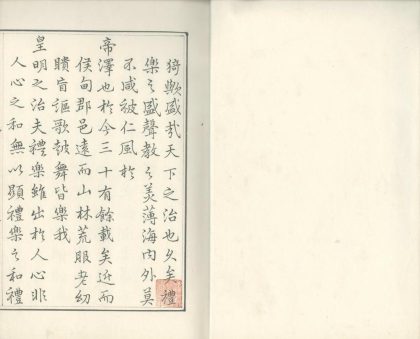 猗歟盛哉天下之治也久矣禮
樂之盛聲教之美薄海内外莫
不咸被仁風於
帝澤也於今三十有餘載矣近而
侯甸郡邑遠而山林荒服老幼
瞶盲謳歌皷舞皆樂我
皇明之治夫禮樂雖出於人心非
人心之和無以顯禮樂之和禮